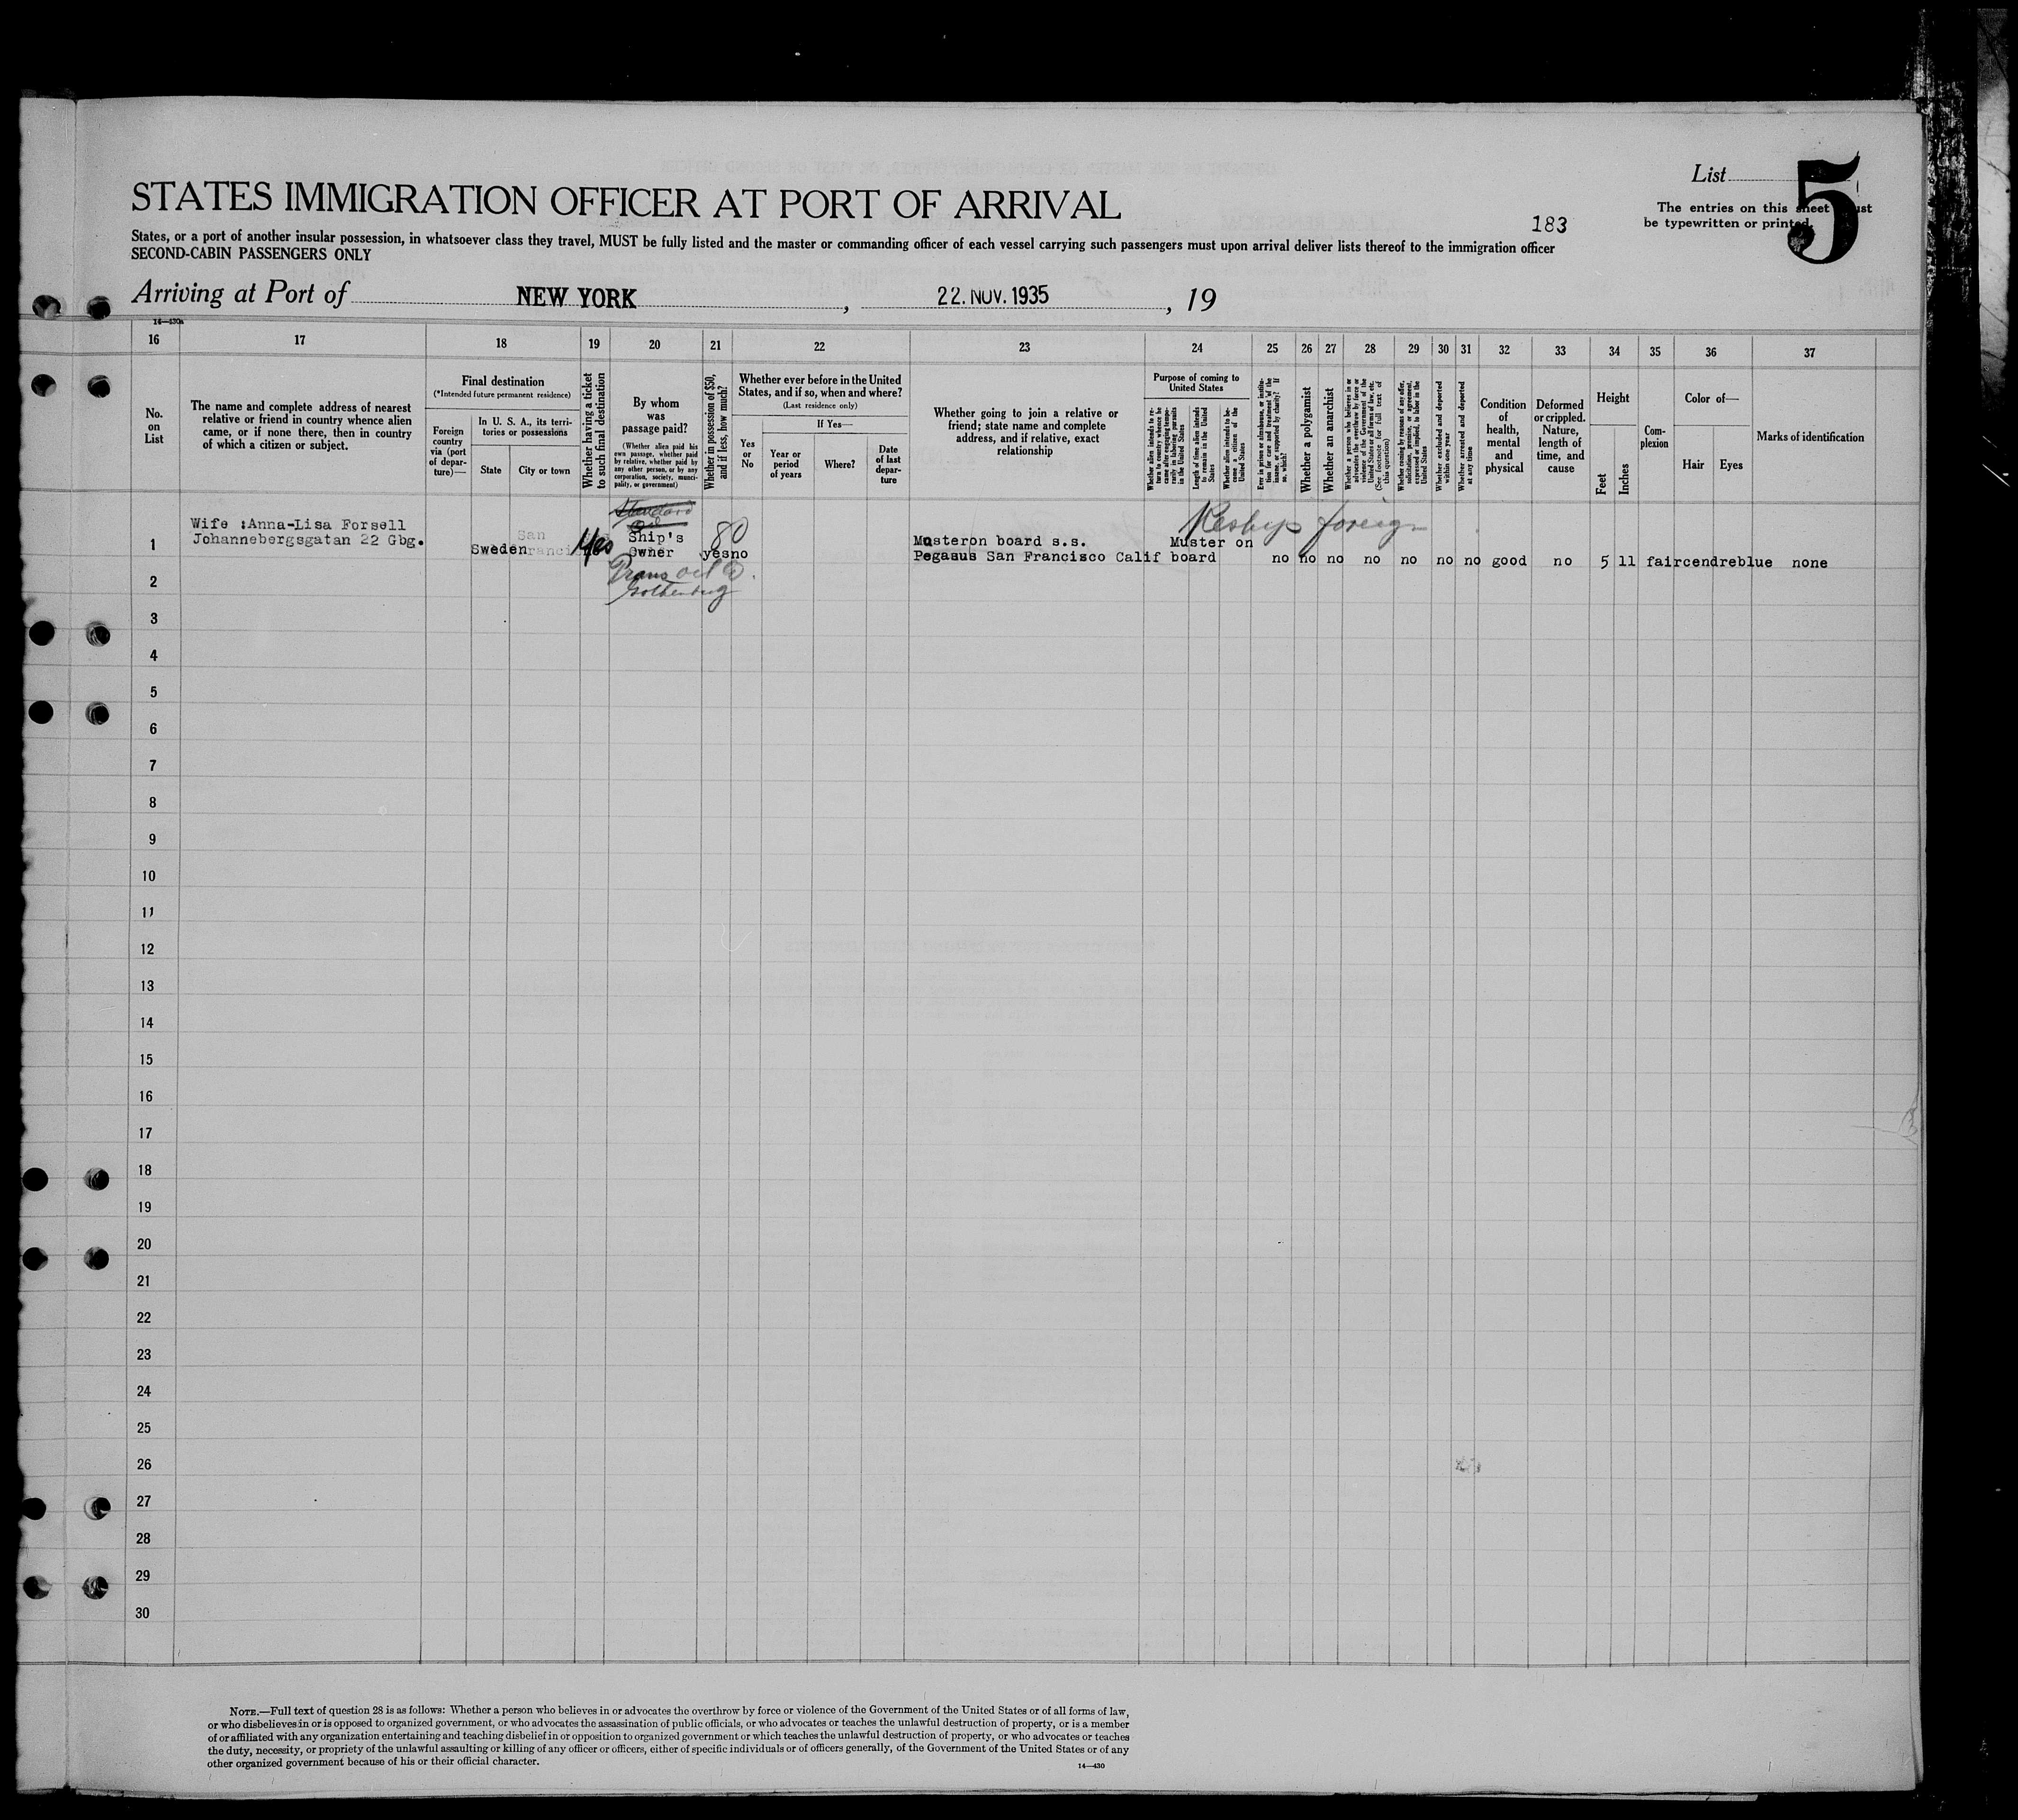 List
5
The entries on this sheet must
be typewritten or printed.
STATES IMMIGRATION OFFICER AT PORT OF ARRIVAL
183
States, or a port of another insular possession, in whatsoever class they travel, MUST be fully listed and the master or commanding officer of each vessel carrying such passengers must upon arrival deliver lists thereof to the immigration officer
SECOND-CABIN PASSENGERS ONLY
Arriving at Port of NEW YORK, 22. NOV. 1935, 19
14—430a
16 17 18 19 20 21 22 23 24 25 26 27 28 29 30 31 32 33 34 35 36 37
No.
on
List
The name and complete address of nearest
relative or friend in country whence alien
came, or if none there, then in country
of which a citizen or subject.
Final destination
(*Intended future permanent residence)
Foreign
country
via (port
of depar-
ture)—
In U. S. A., its terri-
tories or possessions
State
City or town
Whether having a ticket
to such final destination
By whom
was
passage paid?
(Whether alien paid his
own passage, whether paid
by relative, whether paid by
any other person, or by any
corporation, society, munici-
pality, or government)
Whether in possession of $50,
and if less, how much?
Whether ever before in the United
States, and if so, when and where?
(Last residence only)
Yes
or
No
If Yes—
Year or
period
of years
Where?
Date
of last
depar-
ture
Whether going to join a relative or
friend; state name and complete
address, and if relative, exact
relationship
Purpose of coming to
United States
Whether alien intends to re-
turn to country whence he
came after engaging tempo-
rarily in laboring pursuits
in the United States
Length of time alien intends
to remain in the United
States
Whether alien intends to be-
come a citizen of the
United States
Ever in prison or almshouse, or institu-
tion for care and treatment of the
insane, or supported by charity? If
so, which?
Whether a polygamist
Whether an anarchist
Whether a person who believes in or
advocates the overthrow by force or
violence of the Government of the
United States or all forms of law, etc.
(See footnote for full text of
this question)
Whether coming by reason of any offer,
solicitation, promise, or agreement,
expressed or implied, to labor in the
United States
Whether excluded and deported
within one year
Whether arrested and deported
at any time
Condition
of
health,
mental
and
physical
Deformed
or crippled.
Nature,
length of
time, and
cause
Height
Feet
Inches
Com-
plexion
Color of—
Hair
Eyes
Marks of identification
1
Wife :Anna-Lisa Forsell
Johannebergsgatan 22 Gbg.
Sweden
San
Yes
Standard
Oil
Ship's
Owner
Trans oil Co.
Gothenburg
80
yes
no
Muster on board s.s.
Pegasus San Francisco Calif
Reship foreign
Muster on
board
no no no no no no no good no 5 11 fair cendre blue none
2
3
4
5
6
7
8
9
10
11
12
13
14
15
16
17
18
19
20
21
22
23
24
25
26
27
28
29
30
NOTE.—Full text of question 28 is as follows: Whether a person who believes in or advocates the overthrow by force or violence of the Government of the United States or of all forms of law,
or who disbelieves in or is opposed to organized government, or who advocates the assassination of public officials, or who advocates or teaches the unlawful destruction of property, or is a member
of or affiliated with any organization entertaining and teaching disbelief in or opposition to organized government or which teaches the unlawful destruction of property, or who advocates or teaches
the duty, necessity, or propriety of the unlawful assaulting or killing of any officer or officers, either of specific individuals or of officers generally, of the Government of the United States or of any
other organized government because of his or their official character.
14—430